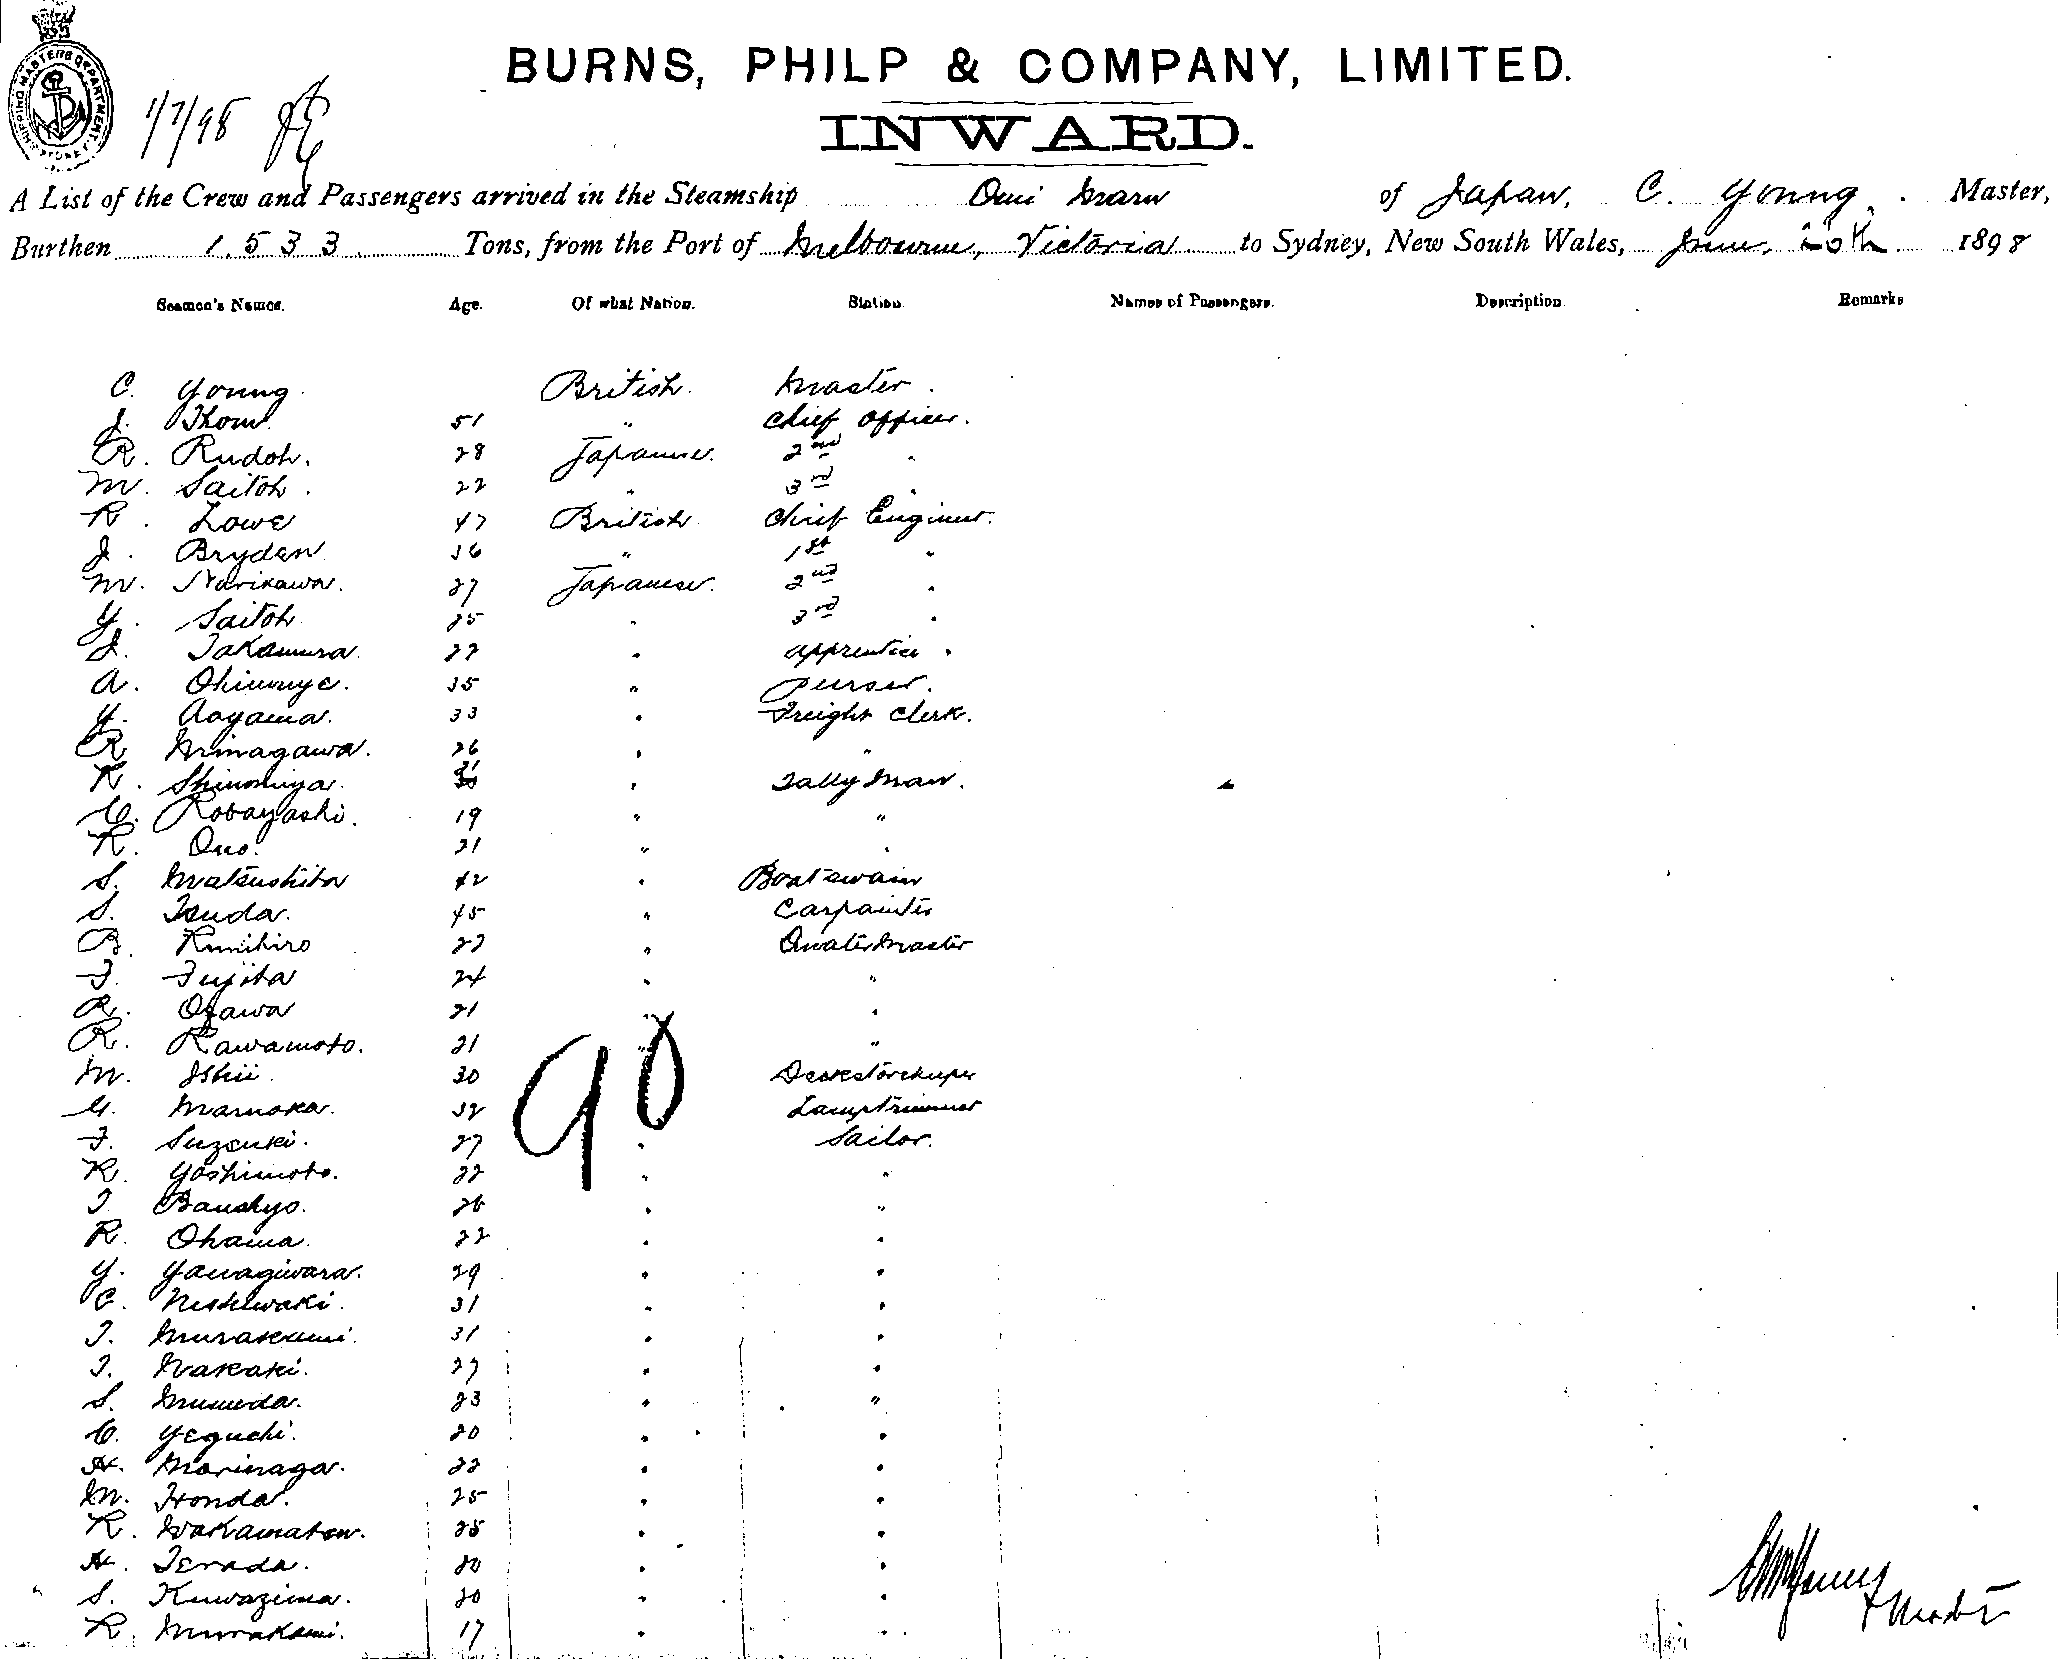 SHIPPING MASTERS DEPARTMENT SYDNEY
1/7/98
BURNS, PHILP & COMPANY, LIMITED.
INWARD.
A List of the Crew and Passengers arrived in the Steamship Omi Maru of Japan, C. Young, Master,
Burthen 1,533 Tons, from the Port of Melbourne, Victoria to Sydney, New South Wales, June, 1898
Seamen's Names. Age. Of what Nation. Station. Names of Passengers. Description. Remarks
C. Young British Master.
J. Thom 51 " Chief Officer.
R. Kudoh. 28 Japanese. 2nd "
M. Saitoh. 22 " 3rd "
R. Lowe 47 British Chief Engineer.
J. Bryden 36 " 1st "
M. Narikawa. 27 Japanese. 2nd "
Y. Saitoh 25 " 3rd "
J. Takamura. 22 " apprentice "
A. 35 " Purser.
Y. Aoyama. 33 " Freight Clerk.
R. Minagawa. 26 " "
K. Shinomiya. " Tally Man.
Kobayashi. 19 " "
K. Ono. 21 " "
S. Matsushita 42 " Boatswain
S. Tsuda. 45 " Carpainter
B. Kunihiro 22 " Quatermaster
F. Fujita 24 " "
R. Ozawa 21 " "
K. Kawamoto. 21 " "
M. Ishii. 30 " Deckstorekeeper
Maruoka. 32 " Lamptrimmer
F. Suzuki. 27 " Sailor.
K. Yoshimoto. 22 " "
T. Banshyo. 26 " "
K. Ohama. 22 " "
Y. Yanagiwara. 29 " "
C. Nishiwaki. 31 " "
T. Murakami. 31 " "
T. Nakaki. 27 " "
S. 23 " "
Yeguchi. 20 " "
H. Morinaga. 22 " "
M. Honda. 25 " "
K. Wakamatsu. 25 " "
H. Terada. 20 " "
S. Kuwazima. 20 " "
K. Murakami. 17 " "
90
Young
Master